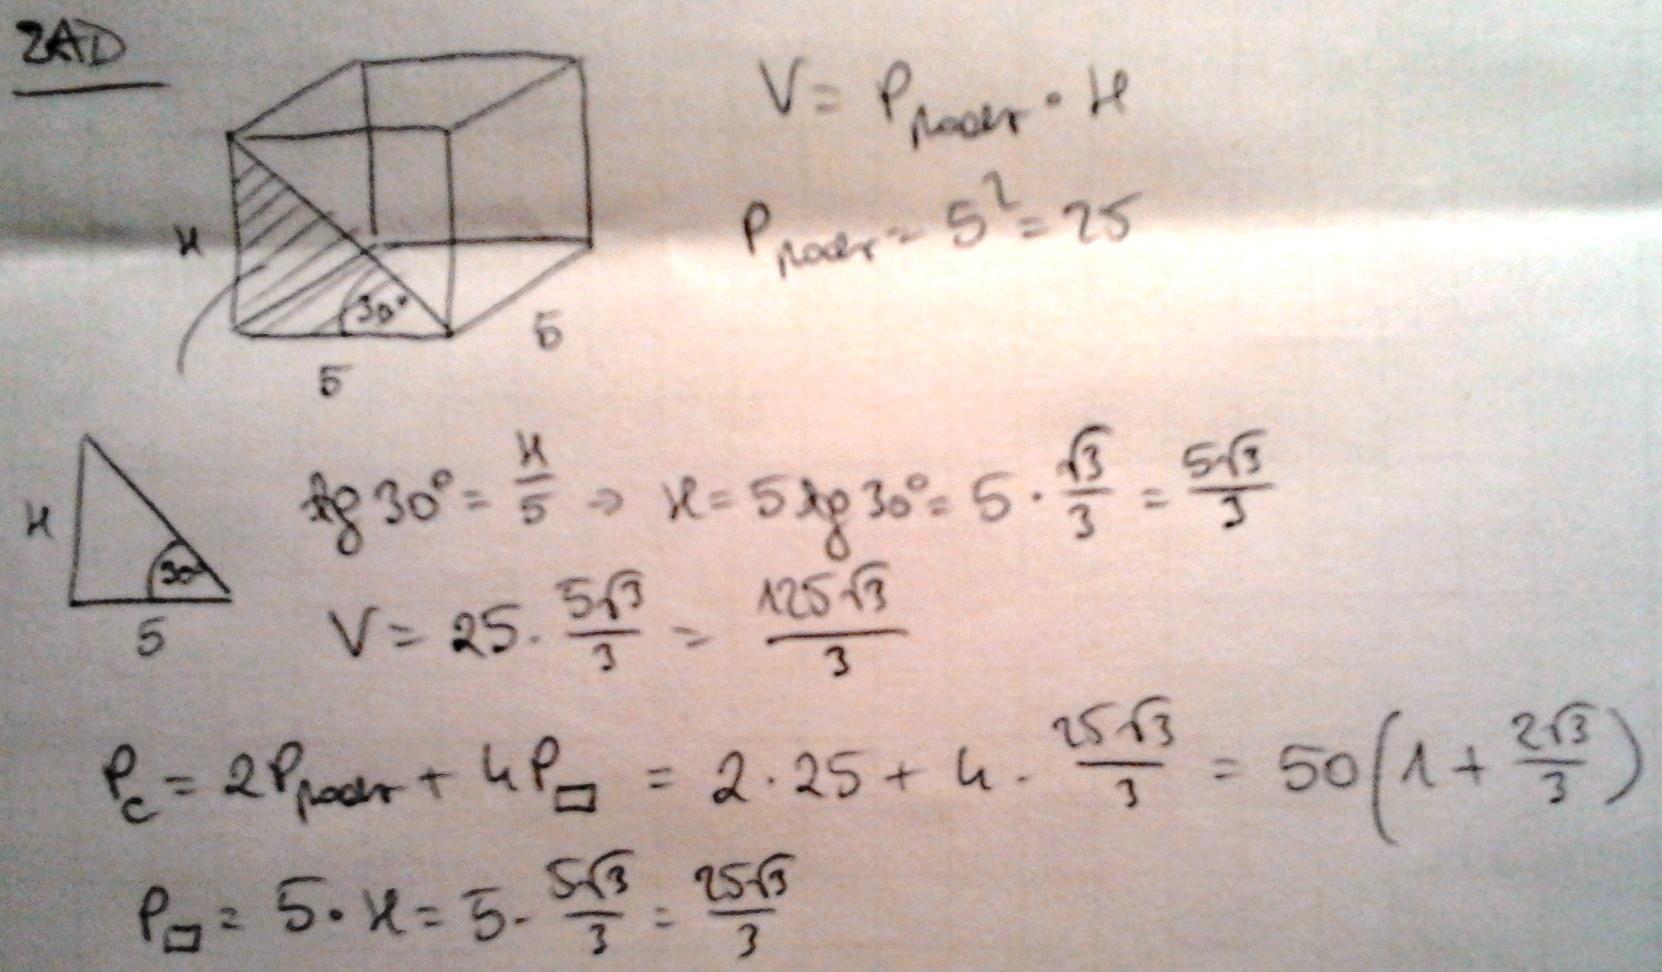 ZAD
V = Ppodst · H
Ppodst = 5² = 25
H
30°
5
5
tg 30° = H/5 → H = 5 tg 30° = 5 · √3/3 = 5√3/3
H
30°
5
V = 25 · 5√3/3 = 125√3/3
Pc = 2Ppodst + 4P▭ = 2 · 25 + 4 · 25√3/3 = 50(1 + 2√3/3)
P▭ = 5 · H = 5 · 5√3/3 = 25√3/3